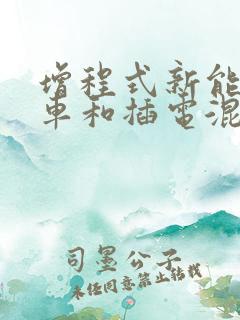 增程式新能
車和插電混
司墨公子
未经同意禁止转载